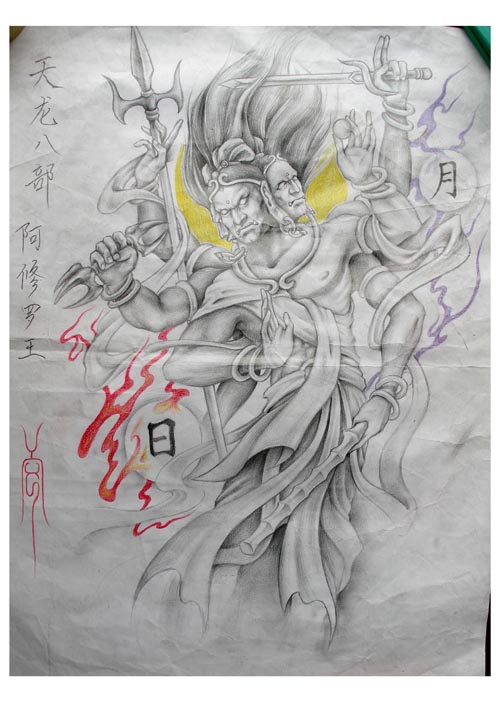 天龙八部
阿修罗王
月
日